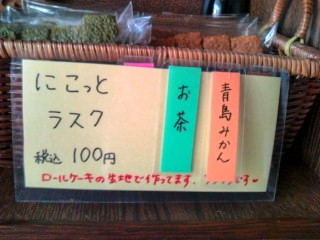 にこっと
ラスク
税込 100円
お茶
青島みかん
ロールケーキの生地で作ってます